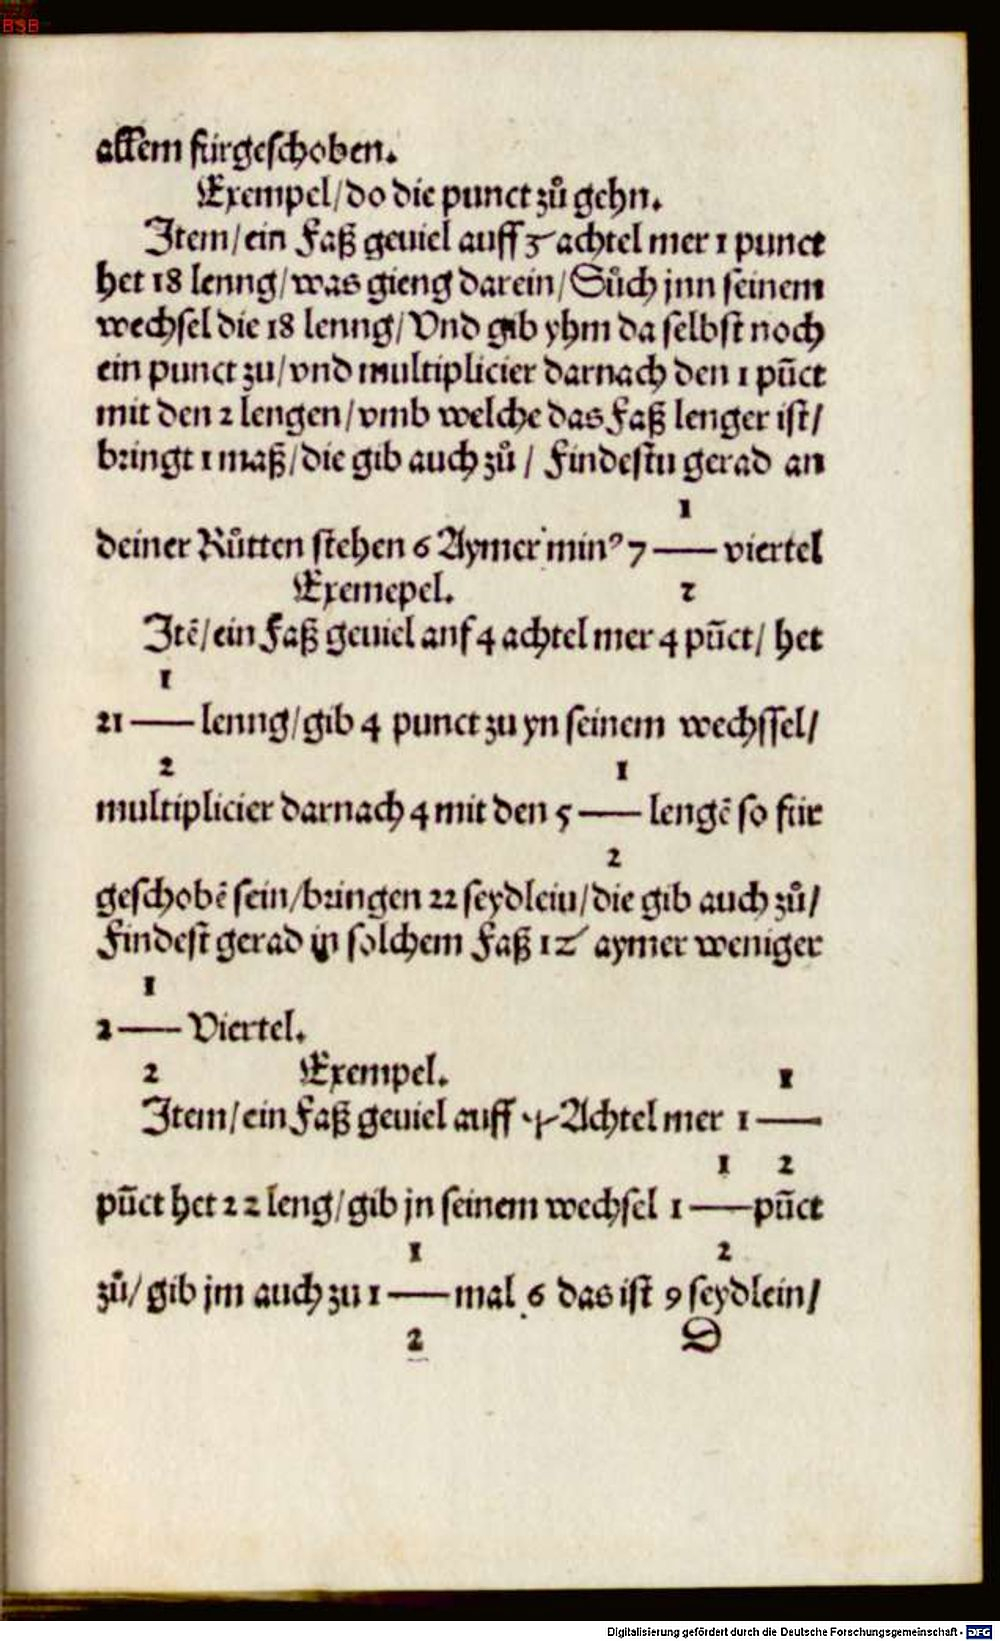 BSB
allem fürgeschoben.
Exempel/do die punct zů gehn.
Item/ein Faß geuiel auff 3 achtel mer 1 punct
het 18 lenng/was gieng darein/Sůch jnn seinem
wechsel die 18 lenng/Vnd gib yhm da selbst noch
ein punct zu/vnd multiplicier darnach den 1 pūct
mit den 2 lengen/vmb welche das Faß lenger ist/
bringt 1 maß/die gib auch zů/ Findestu gerad an
deiner Růtten stehen 6 Aymer minꝰ 7 1/2 viertel
Exemepel.
Itē/ein Faß geuiel anf 4 achtel mer 4 pūct/ het
21 1/2 lenng/gib 4 punct zu yn seinem wechssel/
multiplicier darnach 4 mit den 5 1/2 lengē so für
geschobē sein/bringen 22 seydlein/die gib auch zů/
Findest gerad in solchem Faß 12 aymer weniger
2 1/2 Viertel.
Exempel.
Item/ein Faß geuiel auff 4 Achtel mer 1 1/2
pūct het 22 leng/gib jn seinem wechsel 1 1/2 pūct
zů/gib jm auch zu 1 1/2 mal 6 das ist 9 seydlein/
D
Digitalisierung gefördert durch die Deutsche Forschungsgemeinschaft - DFG